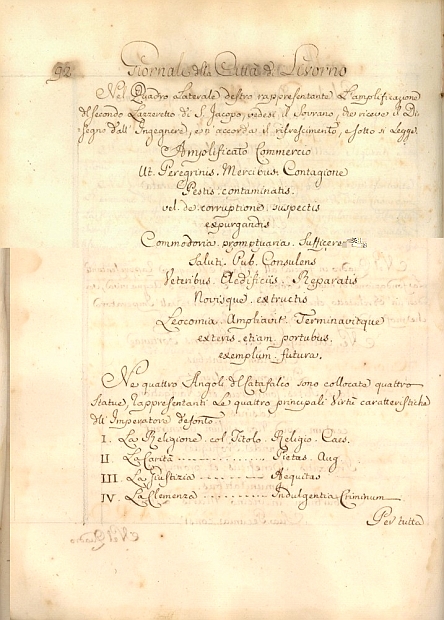 92 Giornale della Città di Livorno
Nel Quadro Laterale destro rappresentante L'amplificazione
del secondo Lazzeretto di S. Jacopo, vedesi il Sovrano, che riceve il Di
segno dall'Ingegnere, e n'accorda il rifrescimento, e sotto si Legge
Amplificato Commercio
Ut. Peregrinis. Mercibus. Contagione
Pestis. contaminatis.
vel. de. corruptione. suspectis
expurgandis
Commodoria. promptuaria. Sufficere
Saluti. Pub. Consulens
Veteribus. Aedificiis. Reparatis
Novisque. extructis
Leocomia. Ampliavit. Terminavitque
exteris. etiam. portubus.
exemplum. futura.
Ne quattro Angoli del Catafalco sono collocate quattro
Statue, rappresentanti Le quattro principali Virtù caratteristiche
dell'Imperatore defonto
I. La Religione col Titolo. Religio. Caes.
II. La Carità Pietas. Aug
III. La Giustizia Aequitas
IV. La Clemenza Indulgentia Criminum
Per tutta